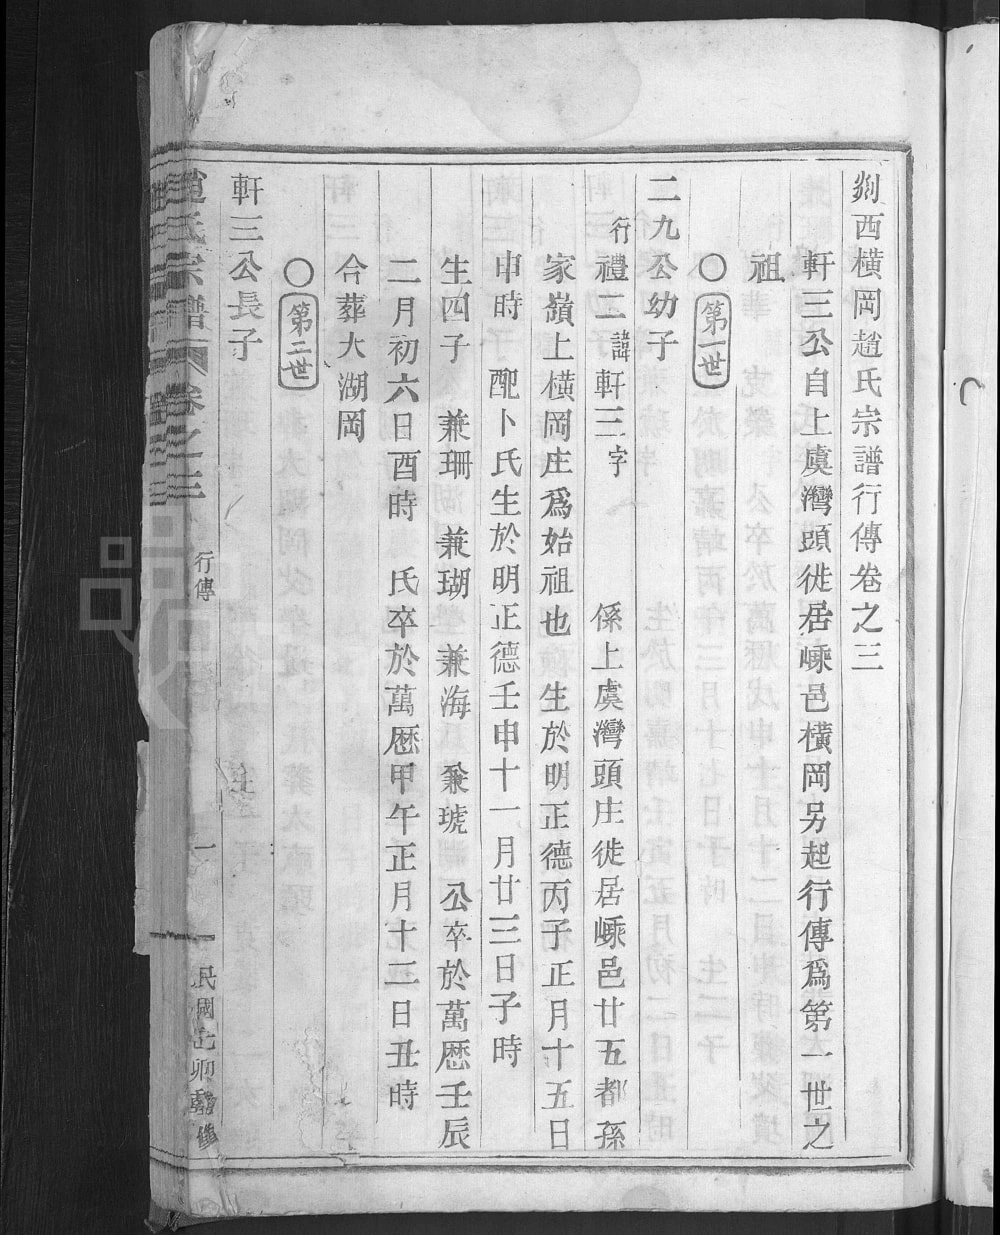 剡西橫岡趙氏宗譜行傳卷之三
軒三公自上虞灣頭徙居嵊邑橫岡另起行傳爲第一世之
祖
○第一世
二九公幼子
行禮二諱軒三字　係上虞灣頭庄徙居嵊邑廿五都孫
家嶺上橫岡庄爲始祖也　生於明正德丙子正月十五日
申時　配卜氏生於明正德壬申十一月廿三日子時
生四子　兼珊　兼瑚　兼海　兼琥　公卒於萬歷壬辰
二月初六日酉時　氏卒於萬歷甲午正月十二日丑時
合葬大湖岡
○第二世
軒三公長子
趙氏宗譜　卷之三　行傳　一　民國己卯重修